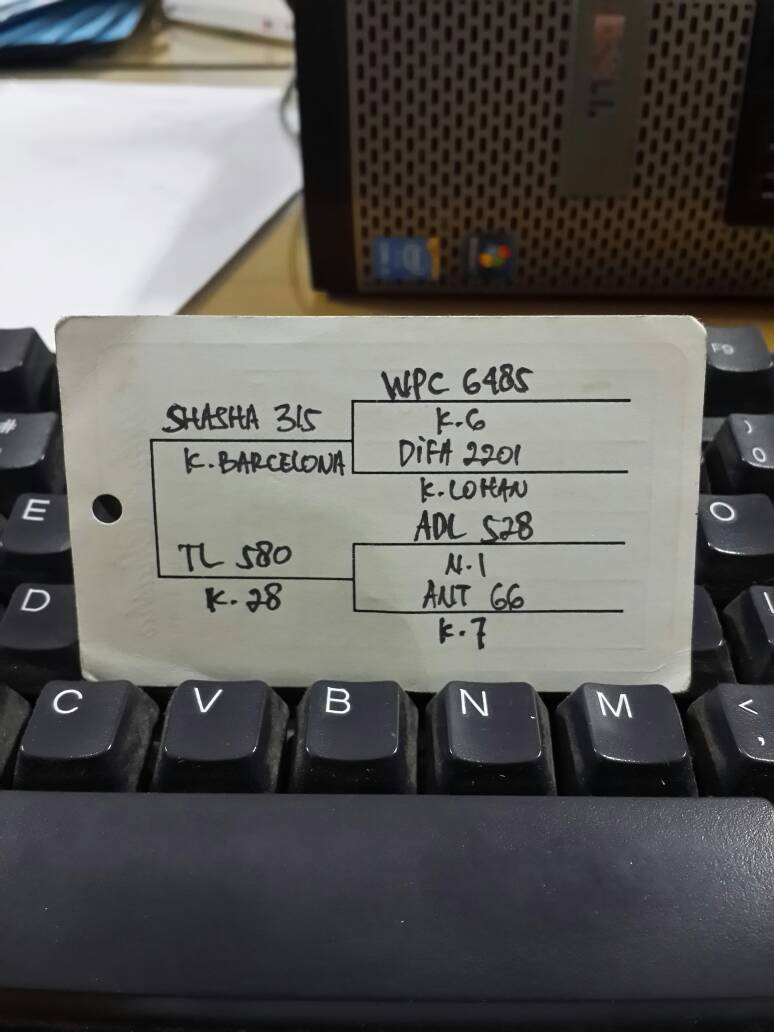 DELL
WPC 6485
SHASHA 315
K.6
K.BARCELONA
DiFA 2201
K.LOHAN
ADL 528
TL 580
N.1
K.28
ANT 66
K.7
F9
#
)
0
E
O
D
C
V
B
N
M
<
,